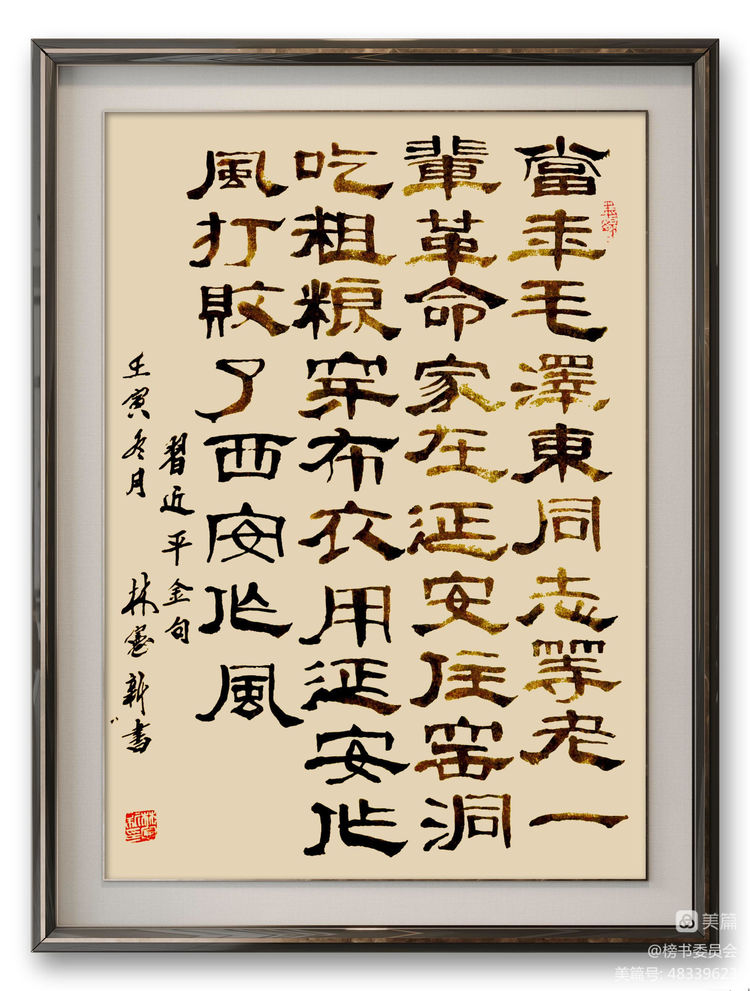 當年毛澤東同志等老一
輩革命家在延安住窑洞
吃粗粮穿布衣用延安作
風打敗了西安作風
習近平金句
壬寅冬月 林憲新書
美篇
@榜书委员会
美篇号: 48339623